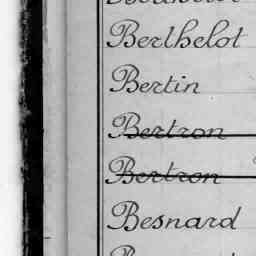 Berthelot
Bertin
Bertron
Bertron
Besnard